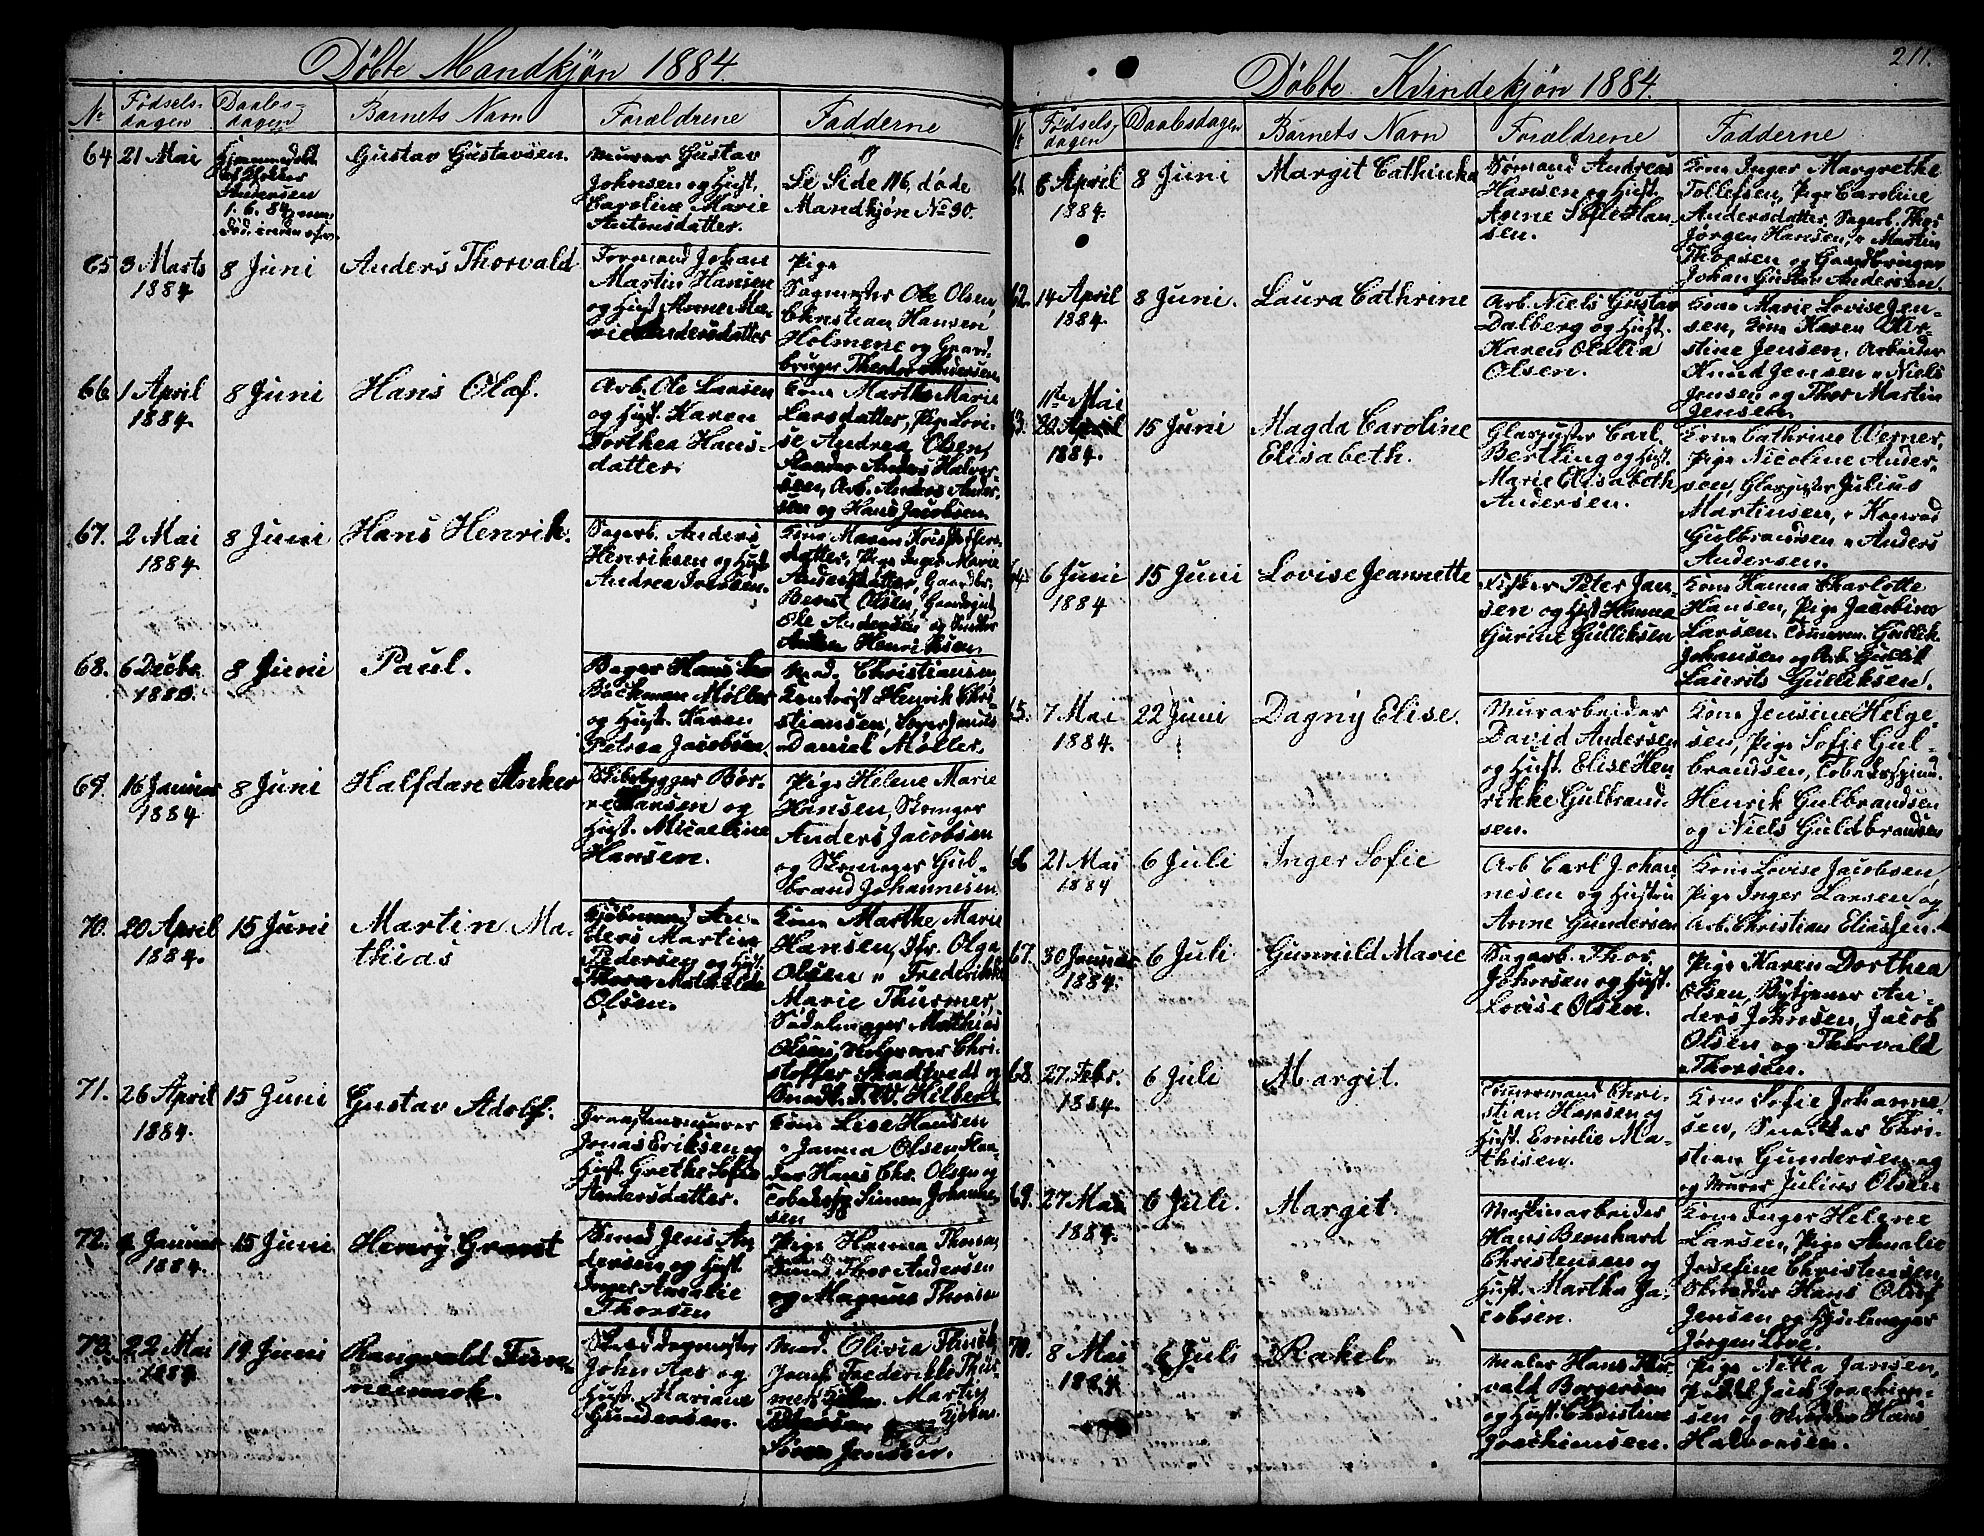 Døbte Mandkjøn 1884.
No
Fødsels-
dagen
Daabs-
dagen
Barnets Navn
Forældrene
Fadderne
64
21 Mai
Hjemmedøbt
Andersen
1. 6. 84
Gustav Gustavsen.
Murer Gustav
Johnsen og Hust.
Caroline Marie
Antonsdatter.
Se Side 116, døde
Mandkjøn No 90.
65
3 Marts
1884
8 Juni
Anders Thorvald
Formand Johan
Martin Hansen
og Hust. Anne Ma-
rie Andersdatter
Pige
Sagmester Ole Olsen,
Christian Hansen
Holmene og Gaard-
bruger Theodor Andersen.
66
1 April
1884.
8 Juni
Hans Olaf.
Arb. Ole Larsen
og Hust. Karen
Dorthea Hans-
datter.
Kone Marthe Marie
Larsdatter, Pige Lovi-
se Andrea Olsen,
Anders Halvor-
sen, Arb. Anders Ander-
sen og Hans Jacobsen.
67.
2 Mai
1884
8 Juni
Hans Henrik.
Sagarb. Anders
Henriksen og Hust
Andrea Iversen.
Kone Maren Kristoffers-
datter, Pige Inger Marie
Andersdatter, Gaardbr.
Bernt Olsen, Gaardsgut
Ole Andersen og
Anton Henriksen
68.
6 Decbr.
1883.
8 Juni
Paul.
Bager Hans
Bachman Møller
og Hust. Karen
Petrea Jacobsen.
Mad. Christiansen,
Kontorist Henrik Chri-
stiansen,
Daniel Møller.
69.
16 Januar
1884
8 Juni
Halfdan Anker
Skibsbygger Bør-
re Hansen og
Hust. Micaeline
Hansen.
Pige Helene Marie
Hansen, Skomager
Anders Jacobsen
og Skomager Gul-
brand Johannesen
70.
20 April
1884.
15 Juni
Martin Ma-
thias
Kjøbmand An-
ders Martin
Pedersen og Hust
Thora Mathilde
Olsen.
Kone Marthe Marie
Hansen, Jfr. Olga
Olsen " Frederikke
Marie Thurmer,
Sadelmager Mathias
Olsen, Chri-
stoffer og
Snedk. F. W. Hilbert
71.
26 April
1884.
15 Juni
Gustav Adolf.
Graastensmurer
Jonas Eriksen og
Hust. Grethe Sofie
Andersdatter.
Kone Lise Hansen
" Janna Olsen
Hans Chr. Olsen og
Simen Johanne-
sen
72.
Januar
1884.
15 Juni
Henry Grant
Smed Jens An-
dersen og Hust
Inger Amalie
Thorsen
Pige Hanna Thorsen
Thor Andersen
og Magnus Thorsen
73.
22 Mai
1884
19 Juni
Rangvald Fun-
nemark.
Skræddermester
John Aas og
Hust. Mariane
Gundersen.
Mad. Olivia
Frederikke Thur-
mer, Martin
Søren Jensen.
211.
Døbte Kvindekjøn 1884.
No
Fødsels-
dagen
Daabsdagen
Barnets Navn
Forældrene
Fadderne
61
8 April
1884.
8 Juni
Margit Cathinka
Sømand Andreas
Hansen og Hust.
Anne Sofie Han-
sen.
Kone Inger Margrethe
Tollefsen, Pige Caroline
Andersdatter, Sagarb. Thor
Jørgen Hansen, " Martin
Thorsen og Gaardbruger
Johan Gustav Andersen.
62.
14 April
1884.
8 Juni.
Laura Cathrine
Arb. Niels Gustav
Dalberg og Hust.
Karen Olalia
Olsen.
Kone Marie Lovise Jen-
sen, Kone Karen Kir-
stine Jensen. Arbeider
Amund Jensen " Niels
Jensen og Thor Martin
Jensen.
63.
11te Mai
20 April
1884.
15 Juni
Magda Caroline
Elisabeth.
Glaspuster Carl
Bertling og Hust.
Marie Elisabeth
Andersen.
Kone Cathrine Werner,
Pige Nicoline Ander-
sen, Glaspuster Julius
Martinsen, " Konrad
Gulbrandsen " Anders
Andersen.
64.
6 Juni
1884
15 Juni
Lovise Jeannette
Fisker Peter Jan-
sen og Hust. Hanna
Gurine Gulliksen
Kone Hanna Charlotte
Hansen, Pige Jacobine
Larsen. Tømmerm. Gullik
Johansen og Arb. Gullik
Laurits Gulliksen.
65.
7 Mai
1884.
22 Juni
Dagny Elise.
Murarbeider
David Andersen
og Hust. Elise Hen-
rikke Gulbrand-
sen.
Kone Jensine Helge-
sen, Pige Sofie Gul-
brandsen, Tobakspind.
Henrik Gulbrandsen
og Niels Guldbrandsen
66
21 Mai
1884
6 Juli
Inger Sofie
Arb Carl Johan-
nesen og Hustru
Anne Gundersen
Kone Lovise Jacobsen,
Pige Inger Larsen og
Arb. Christian Eliassen.
67.
30 Januar
1884.
6 Juli
Gunnild Marie
Sagarb. Thor
Johnsen og Hust.
Lovise Olsen.
Pige Karen Dorthea
Olsen, Bytjener An-
ders Johnsen, Jacob
Olsen og Thorvald
Thorsen.
68.
27 Febr.
1884.
6 Juli
Margit.
Tømermand Chri-
stian Hansen og
Hust. Emilie Ma-
thisen.
Kone Sofie Johanne-
sen, Snedker Chri-
stian Gundersen og
og Murer Julius Olsen
69.
27 Mai
1884.
6 Juli.
Margit.
Maskinarbeider
Hans Bernhard
Christensen og
Hust. Martha Ja-
cobsen.
Kone Inger Helene
Larsen, Pige Amalie
Josefine Christensen
Skrædder Hans Oluf
Jensen og Hjulmager
Jørgen Løve.
70.
8 Mai
1884
6 Juli
Rakel.
Maler Hans Thor-
vald Borgersen
og Hust. Christine
Joachimsen.
Pige Netta Jansen,
Joachim-
sen og Skrædder Hans
Halvorsen.